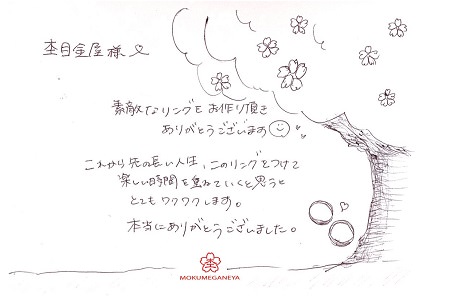 杢目金屋様
素敵なリングをお作り頂き
ありがとうございます
これから先の長い人生、このリングをつけて
楽しい時間を重ねていくと思うと
とてもワクワクします。
本当にありがとうございました。
MOKUMEGANEYA